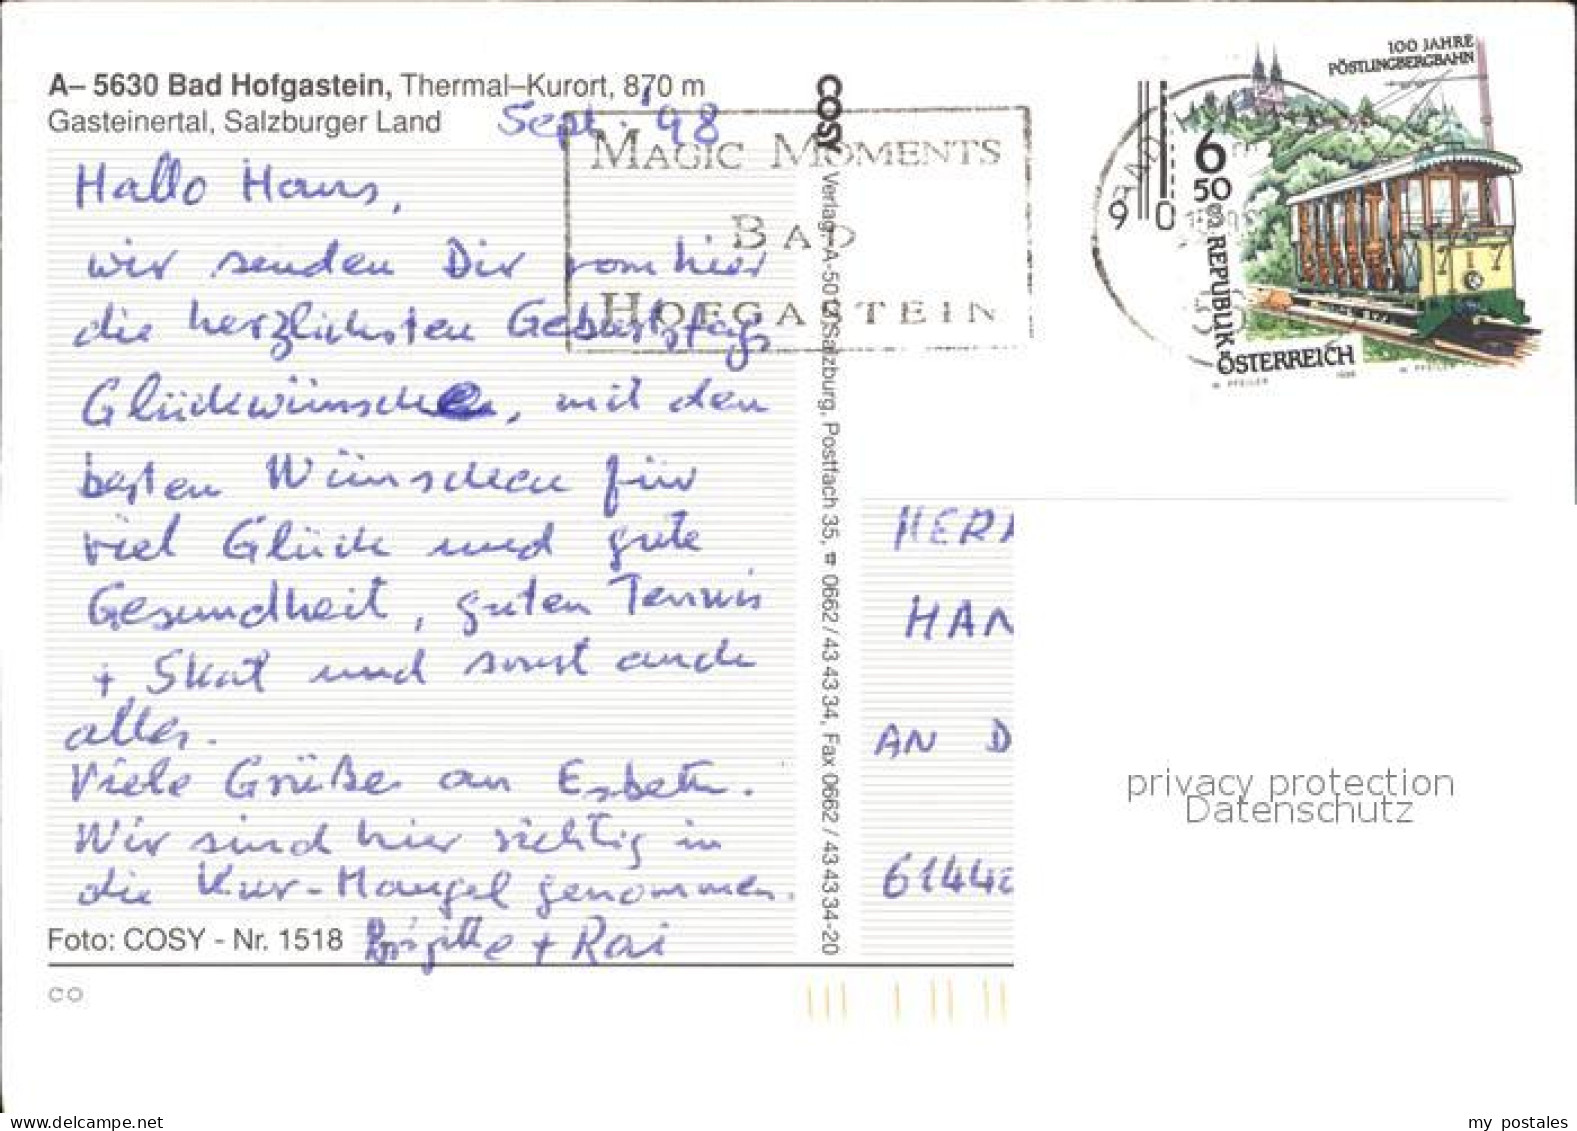 A– 5630 Bad Hofgastein, Thermal–Kurort, 870 m
Gasteinertal, Salzburger Land
Sept. '98
Hallo Hans,
wir senden Dir vom hier
die herzlichsten Geburtstags
Glückwünsche, mit den
besten Wünschen für
viel Glück und gute
Gesundheit, guten Tennis
+ Skat und sonst auch
alles.
Viele Grüße an Esbeth.
Wir sind hier richtig in
die Kur-Mangel genommen.
Brigitte + Rai
Foto: COSY - Nr. 1518
CO
COSY Verlag, A-5013 Salzburg, Postfach 35, ☎ 0662 / 43 43 34, Fax 0662 / 43 43 34-20
MAGIC MOMENTS
BAD
HOFGASTEIN
BAD
90
100 JAHRE
PÖSTLINGBERGBAHN
6
50
S
REPUBLIK
ÖSTERREICH
W. PFEILER 1998 W. PFEILER
HERR
HAN
AN D
61440
privacy protection
Datenschutz
www.delcampe.net
my postales